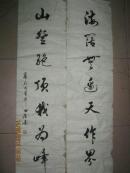 海阔无边天作界
山登绝顶我为峰